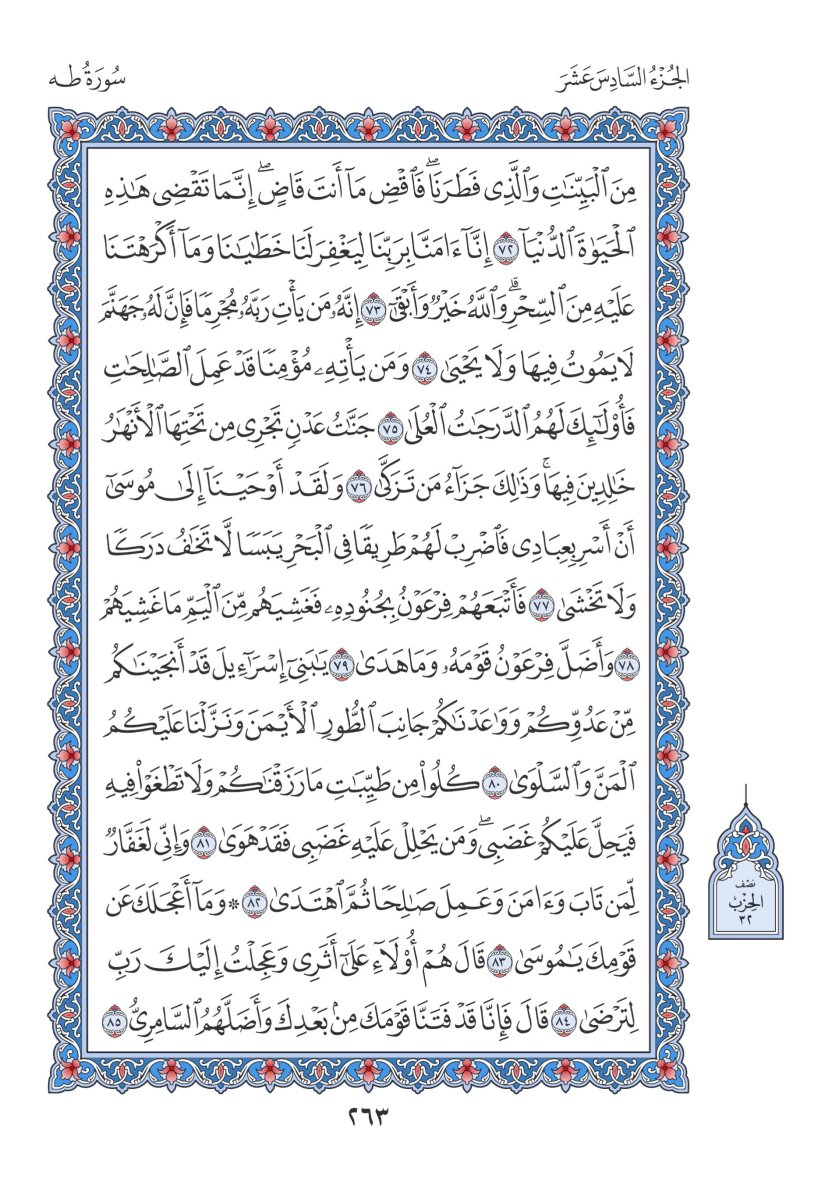 الجُزْءُ السَّادِسَ عَشَرَ
سُورَةُ طه
مِنَ ٱلْبَيِّنَٰتِ وَٱلَّذِى فَطَرَنَاۖ فَٱقْضِ مَآ أَنتَ قَاضٍۖ إِنَّمَا تَقْضِى هَٰذِهِ
ٱلْحَيَوٰةَ ٱلدُّنْيَآ ٧٢ إِنَّآ ءَامَنَّا بِرَبِّنَا لِيَغْفِرَ لَنَا خَطَٰيَٰنَا وَمَآ أَكْرَهْتَنَا
عَلَيْهِ مِنَ ٱلسِّحْرِۗ وَٱللَّهُ خَيْرٌ وَأَبْقَىٰٓ ٧٣ إِنَّهُۥ مَن يَأْتِ رَبَّهُۥ مُجْرِمًا فَإِنَّ لَهُۥ جَهَنَّمَ
لَا يَمُوتُ فِيهَا وَلَا يَحْيَىٰ ٧٤ وَمَن يَأْتِهِۦ مُؤْمِنًا قَدْ عَمِلَ ٱلصَّٰلِحَٰتِ
فَأُوْلَٰٓئِكَ لَهُمُ ٱلدَّرَجَٰتُ ٱلْعُلَىٰ ٧٥ جَنَّٰتُ عَدْنٍ تَجْرِى مِن تَحْتِهَا ٱلْأَنْهَٰرُ
خَٰلِدِينَ فِيهَاۚ وَذَٰلِكَ جَزَآءُ مَن تَزَكَّىٰ ٧٦ وَلَقَدْ أَوْحَيْنَآ إِلَىٰ مُوسَىٰٓ
أَنْ أَسْرِ بِعِبَادِى فَٱضْرِبْ لَهُمْ طَرِيقًا فِى ٱلْبَحْرِ يَبَسًا لَّا تَخَٰفُ دَرَكًا
وَلَا تَخْشَىٰ ٧٧ فَأَتْبَعَهُمْ فِرْعَوْنُ بِجُنُودِهِۦ فَغَشِيَهُم مِّنَ ٱلْيَمِّ مَا غَشِيَهُمْ
٧٨ وَأَضَلَّ فِرْعَوْنُ قَوْمَهُۥ وَمَا هَدَىٰ ٧٩ يَٰبَنِىٓ إِسْرَٰٓءِيلَ قَدْ أَنجَيْنَٰكُم
مِّنْ عَدُوِّكُمْ وَوَٰعَدْنَٰكُمْ جَانِبَ ٱلطُّورِ ٱلْأَيْمَنَ وَنَزَّلْنَا عَلَيْكُمُ
ٱلْمَنَّ وَٱلسَّلْوَىٰ ٨٠ كُلُواْ مِن طَيِّبَٰتِ مَا رَزَقْنَٰكُمْ وَلَا تَطْغَوْاْ فِيهِ
فَيَحِلَّ عَلَيْكُمْ غَضَبِىۖ وَمَن يَحْلِلْ عَلَيْهِ غَضَبِى فَقَدْ هَوَىٰ ٨١ وَإِنِّى لَغَفَّارٌ
لِّمَن تَابَ وَءَامَنَ وَعَمِلَ صَٰلِحًا ثُمَّ ٱهْتَدَىٰ ٨٢ * وَمَآ أَعْجَلَكَ عَن
قَوْمِكَ يَٰمُوسَىٰ ٨٣ قَالَ هُمْ أُوْلَآءِ عَلَىٰٓ أَثَرِى وَعَجِلْتُ إِلَيْكَ رَبِّ
لِتَرْضَىٰ ٨٤ قَالَ فَإِنَّا قَدْ فَتَنَّا قَوْمَكَ مِنۢ بَعْدِكَ وَأَضَلَّهُمُ ٱلسَّامِرِىُّ ٨٥
نصْف
الحِزْب
٣٢
٢٦٣